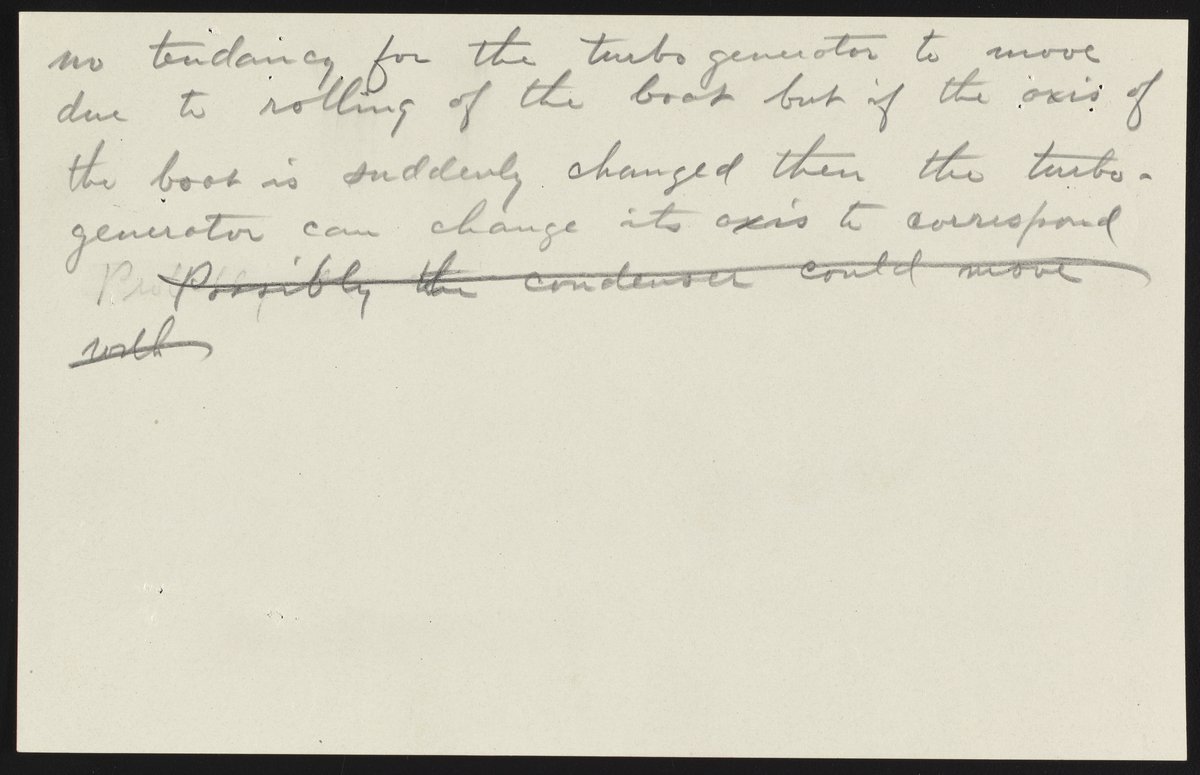 no tendancy for the turbo generator to move
due to rolling of the boat but if the axis of
the boat is suddenly changed then the turbo-
generator can change its axis to correspond
Possibly the condenser could move
with